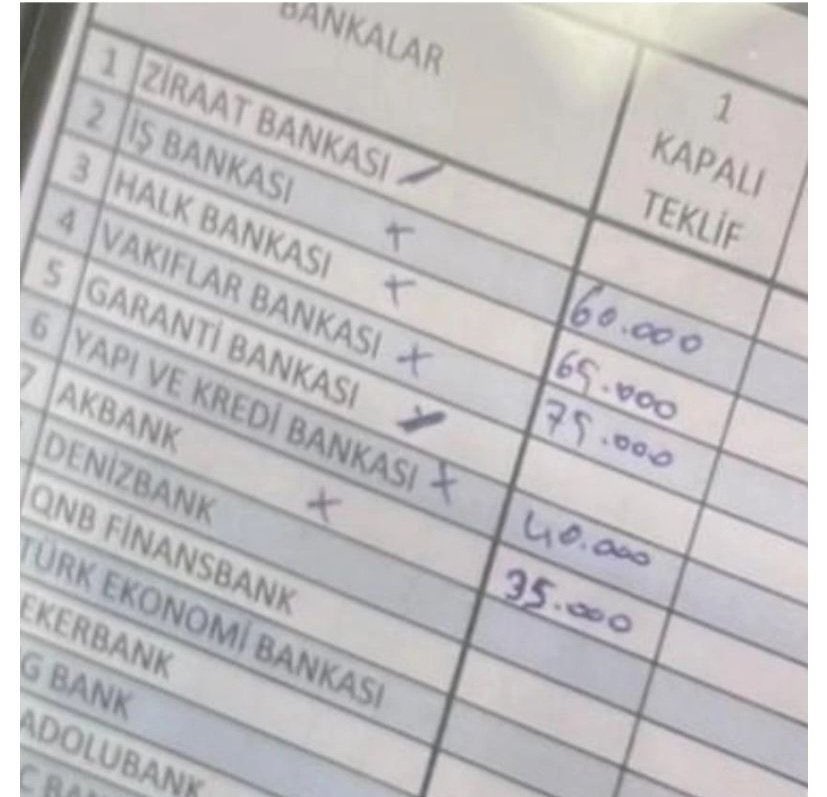 BANKALAR
1
KAPALI
TEKLİF
1 ZİRAAT BANKASI -
2 İŞ BANKASI + 60.000
3 HALK BANKASI + 65.000
4 VAKIFLAR BANKASI + 75.000
5 GARANTİ BANKASI -
6 YAPI VE KREDİ BANKASI + 40.000
7 AKBANK + 35.000
DENİZBANK
QNB FİNANSBANK
TÜRK EKONOMİ BANKASI
EKERBANK
G BANK
ADOLUBANK